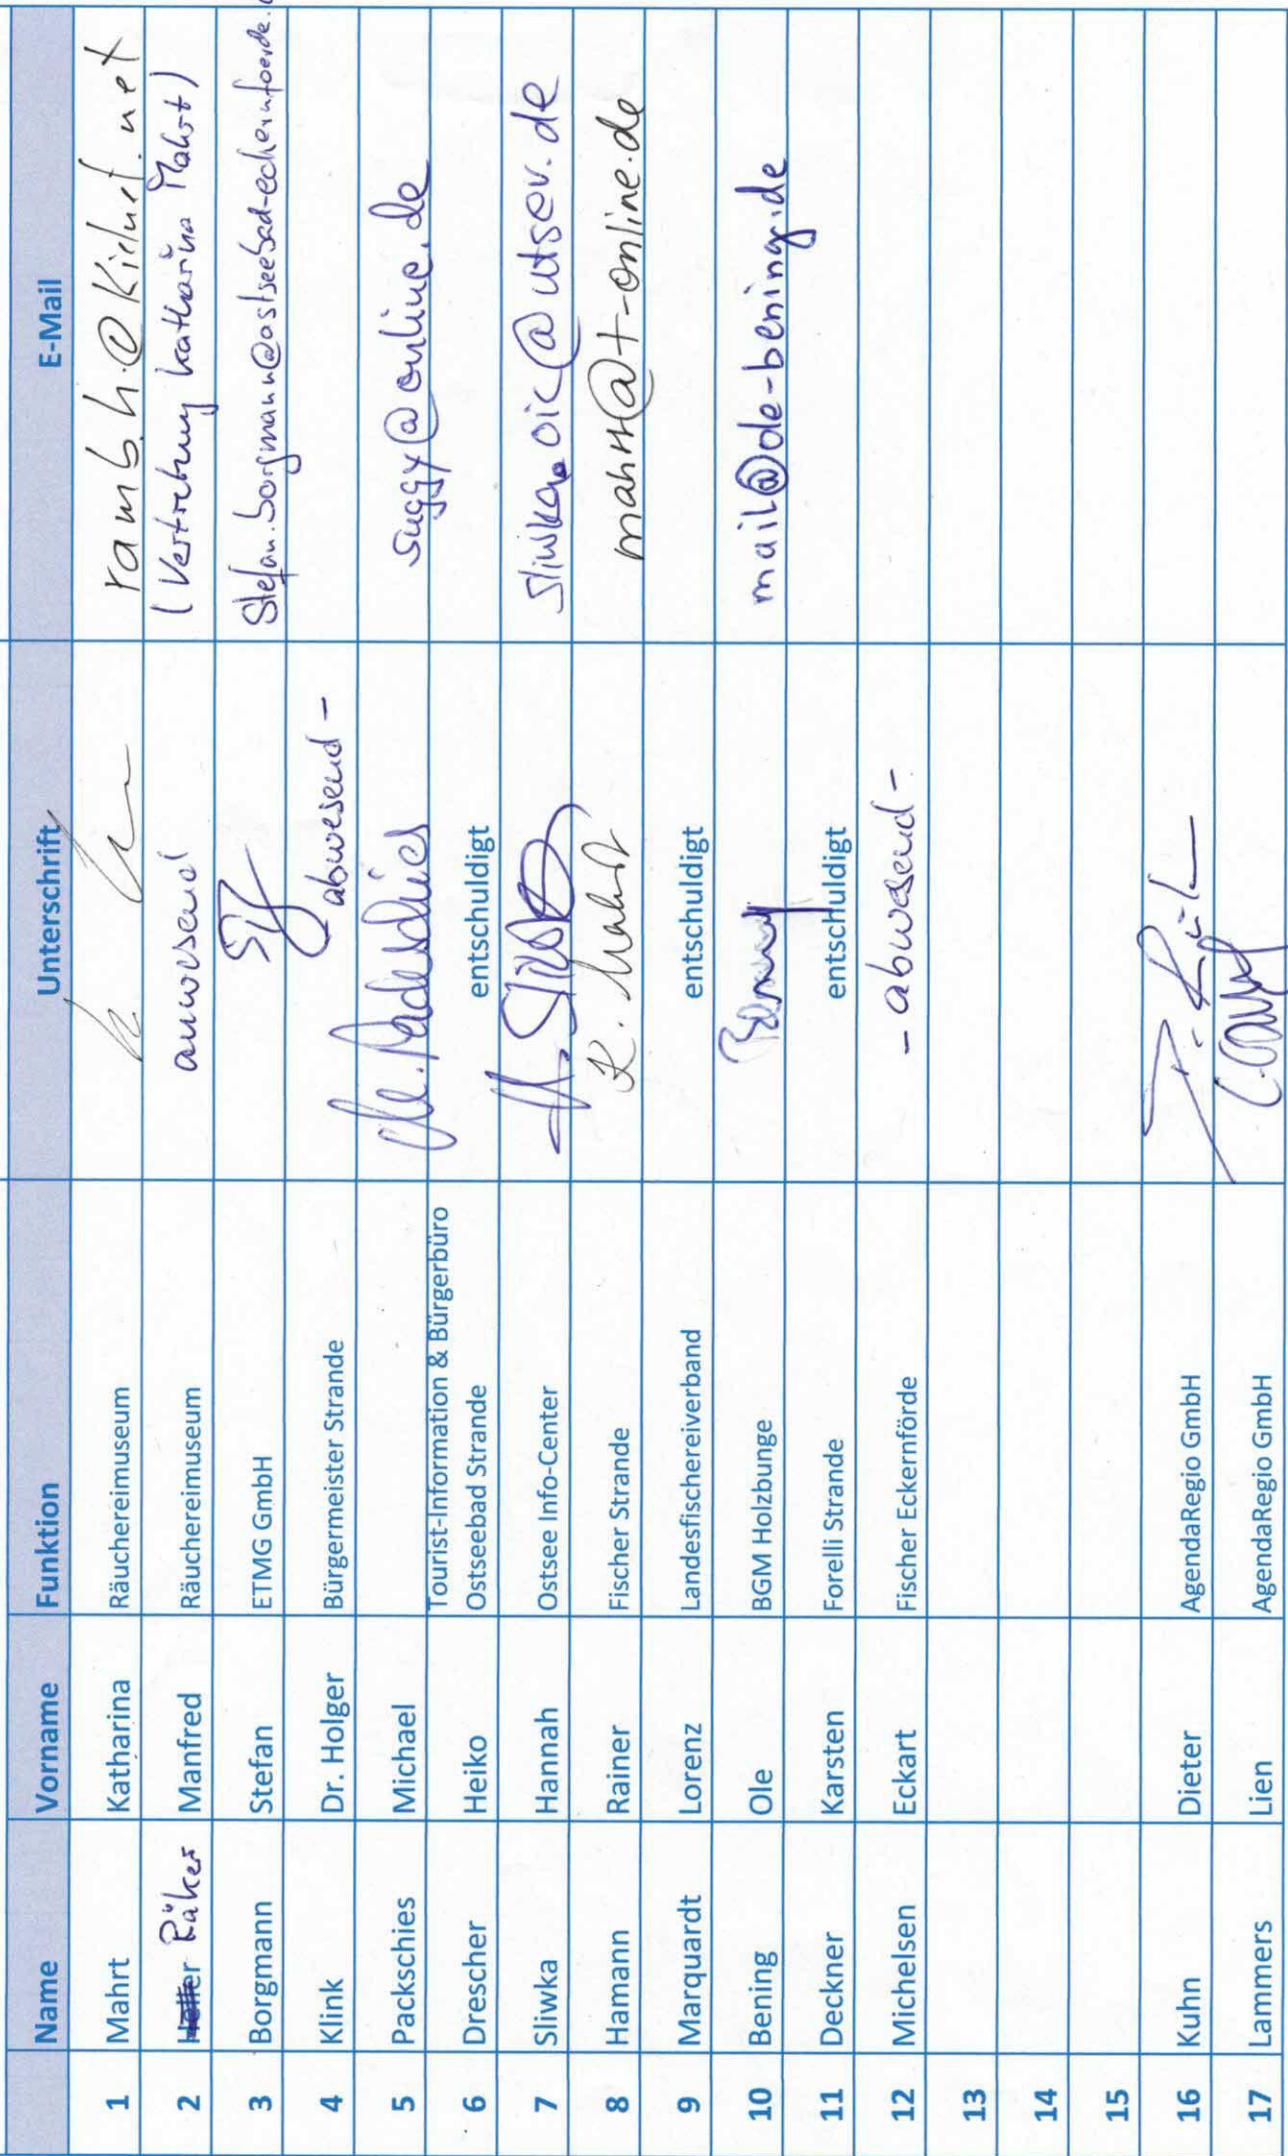 Name Vorname Funktion Unterschrift E-Mail
1 Mahrt Katharina Räuchereimuseum
2 Räker Manfred Räuchereimuseum anwesend (Vertretung Katharina Mahrt)
3 Borgmann Stefan ETMG GmbH
4 Klink Dr. Holger Bürgermeister Strande abwesend -
5 Packschies Michael suggy@online.de
Tourist-Information & Bürgerbüro
6 Drescher Heiko Ostseebad Strande entschuldigt
7 Sliwka Hannah Ostsee Info-Center H. Sliwka sliwka.oic@utsev.de
8 Hamann Rainer Fischer Strande K. Mahrt
9 Marquardt Lorenz Landesfischereiverband entschuldigt
10 Bening Ole BGM Holzbunge Bening mail@ole-bening.de
11 Deckner Karsten Forelli Strande entschuldigt
12 Michelsen Eckart Fischer Eckernförde - abwesend -
13
14
15
16 Kuhn Dieter AgendaRegio GmbH
17 Lammers Lien AgendaRegio GmbH